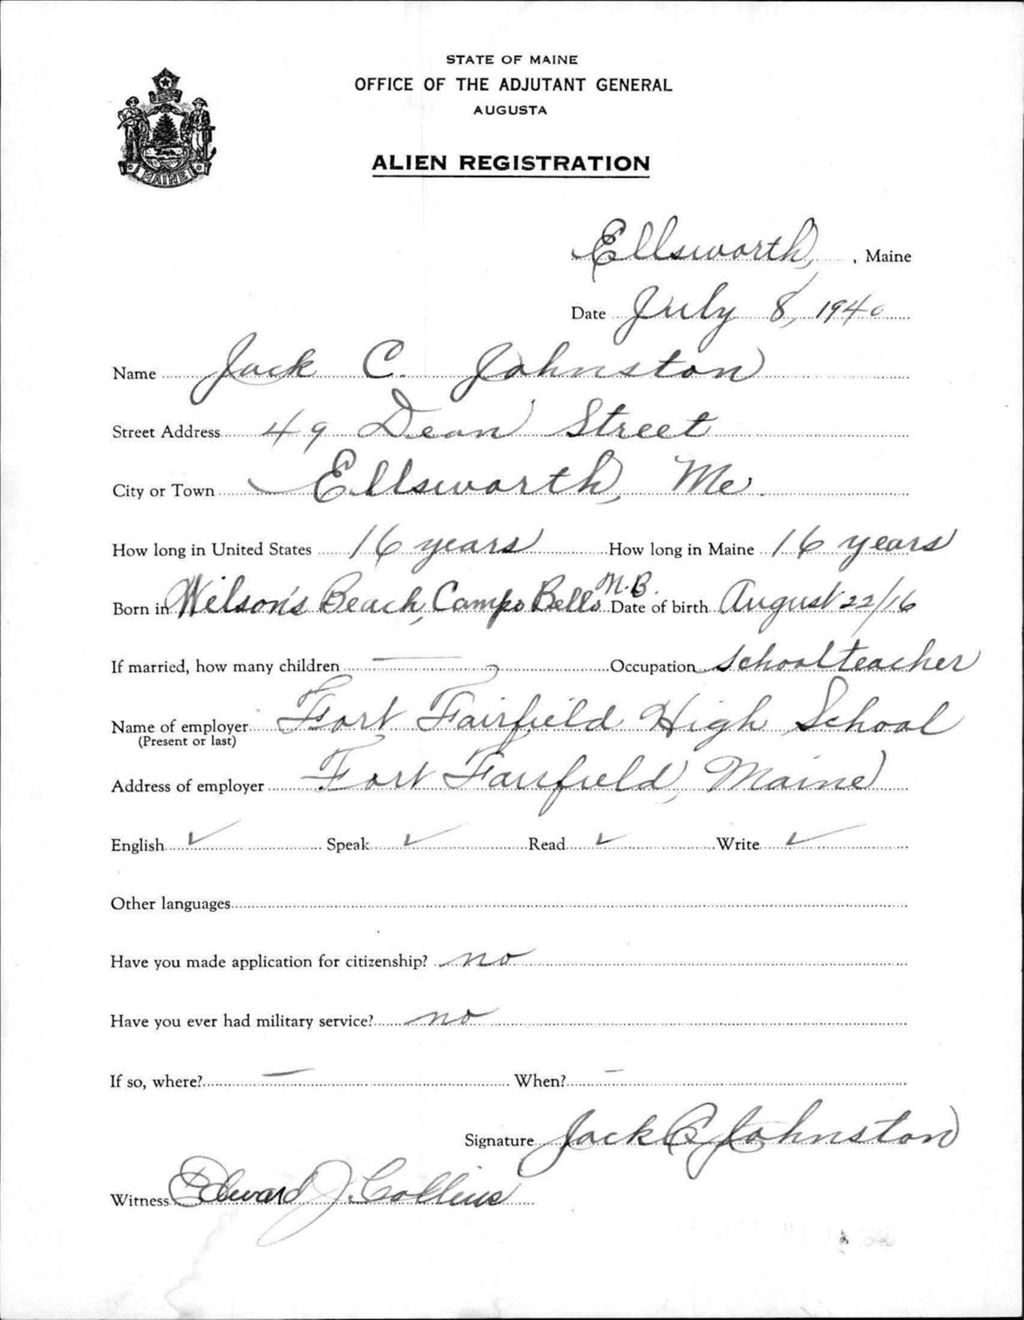 STATE OF MAINE
OFFICE OF THE ADJUTANT GENERAL
AUGUSTA
ALIEN REGISTRATION
MAINE
Ellsworth, , Maine
Date July 8, 1940
Name Jack C. Johnston
Street Address 49 Dean Street
City or Town Ellsworth, Me.
How long in United States 16 years How long in Maine 16 years
Born in Wilson's Beach, Campo Bello N.B. Date of birth August 22/16
If married, how many children — Occupation Schoolteacher
Name of employer Fort Fairfield High School
(Present or last)
Address of employer Fort Fairfield, Maine
English ✓ Speak ✓ Read ✓ Write ✓
Other languages
Have you made application for citizenship? no
Have you ever had military service? no
If so, where? — When? —
Signature Jack C Johnston
Witness Edward J. Collins